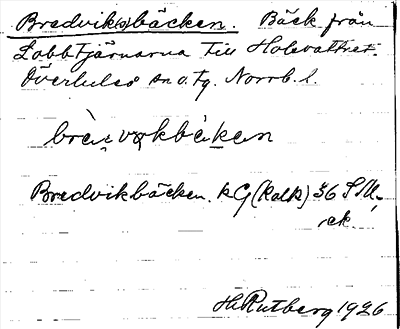 Bredvik(s)bäcken. Bäck från
Lobbtjärnarna till Holevattnet.
Överluleå sn o. tg. Norrb. l.
brèi̯vikbèkɛn
Bredvikbäcken. kG (kalk) 36
H. Rutberg 1926